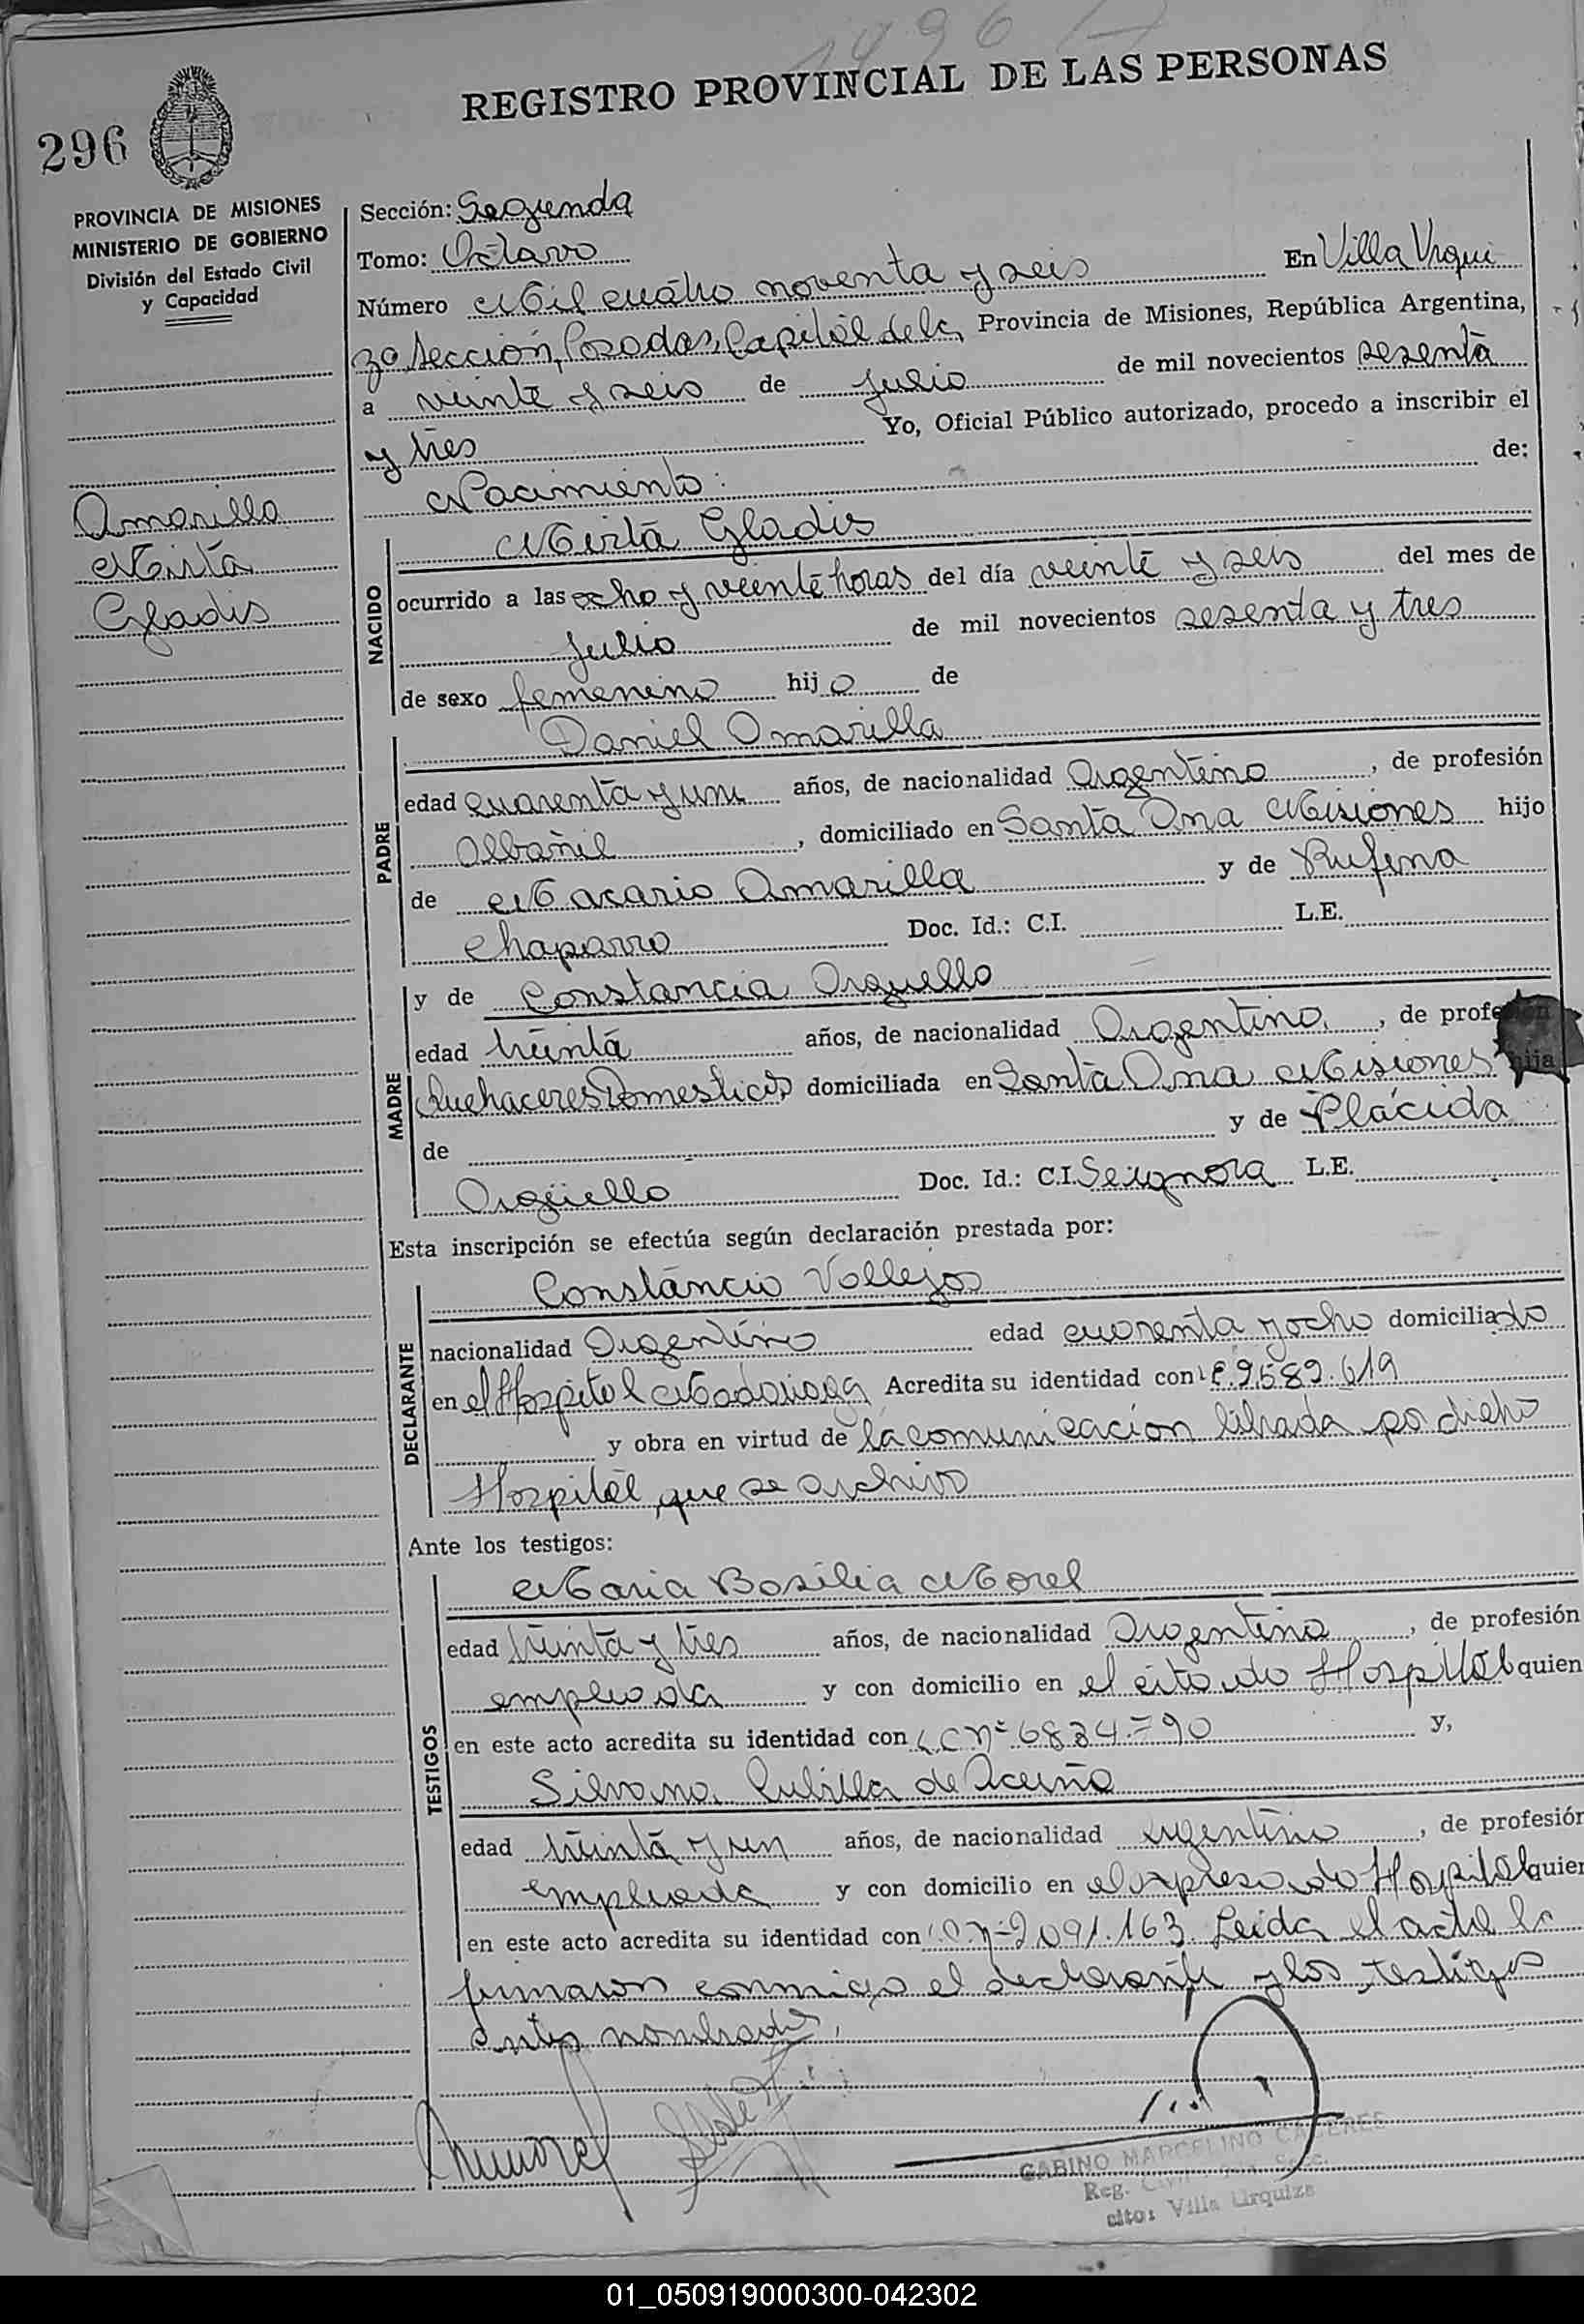 1496
REGISTRO PROVINCIAL DE LAS PERSONAS
296
PROVINCIA DE MISIONES
MINISTERIO DE GOBIERNO
División del Estado Civil
y Capacidad
Amarilla
Mirta
Gladis
Sección: Segunda
Tomo: Octavo
Número Mil cuatro noventa y seis En Villa Urqui
za Sección, Posadas, Capital de la Provincia de Misiones, República Argentina,
a veinte y seis de Julio de mil novecientos sesenta
y tres Yo, Oficial Público autorizado, procedo a inscribir el
Nacimiento: de:
NACIDO
Mirta Gladis
ocurrido a las ocho y veinte horas del día veinte y seis del mes de
Julio de mil novecientos sesenta y tres
de sexo femenino hija de
PADRE
Daniel Amarilla
edad cuarenta y un años, de nacionalidad Argentino, de profesión
Albañil, domiciliado en Santa Ana Misiones hijo
de Macario Amarilla y de Rufina
Chaparro Doc. Id.: C.I. L.E.
MADRE
y de Constancia Arguello
edad treinta años, de nacionalidad Argentina, de profesión
Quehaceres Domesticos domiciliada en Santa Ana Misiones hija
de y de Plácida
Argüello Doc. Id.: C.I. Se ignora L.E.
Esta inscripción se efectúa según declaración prestada por:
DECLARANTE
Constancio Vallejos
nacionalidad Argentino edad cuarenta y ocho domiciliado
en el Hospital Madariaga Acredita su identidad con 9.589.619
y obra en virtud de la comunicación librada por dicho
Hospital, que se archiva
Ante los testigos:
TESTIGOS
Maria Basilia Morel
edad treinta y tres años, de nacionalidad Argentina, de profesión
empleada y con domicilio en el citado Hospital quien
en este acto acredita su identidad con LC nº y,
Silvana de Acuña
edad treinta y un años, de nacionalidad argentina, de profesión
empleada y con domicilio en el expresado Hospital quien
en este acto acredita su identidad con 2.091.163. Leida el acta la
firmaron conmigo el declarante y los testigos
antes nombrados.
GABINO MARCELINO CACERES
Reg. Civil Secc.
cito: Villa Urquiza
01_050919000300-042302